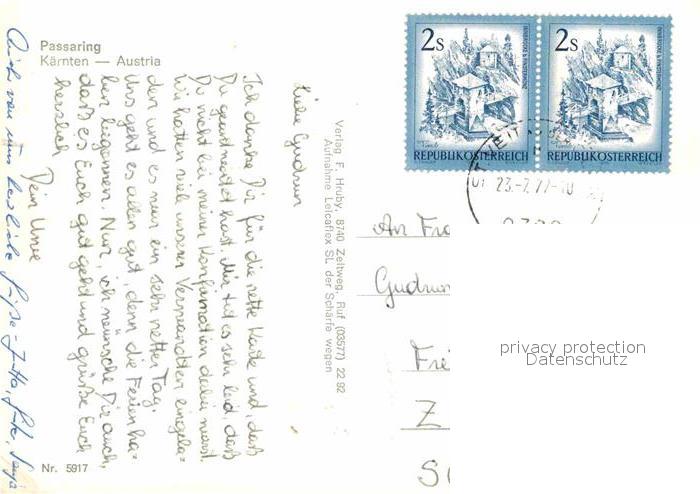 Passaring
Kärnten — Austria
Liebe Gudrun
Ich danke Dir für die nette Karte und, daß
Du geschrieben hast. Mir tut es sehr leid, daß
Du nicht bei meiner Konfirmation dabei warst.
Wir hatten viel unserer Verwandten eingela=
den und es war ein sehr netter Tag.
Uns geht es allen gut, denn die Ferien ha=
ben begonnen. Nun, ich wünsche Dir auch,
daß es Euch gut geht und grüße Euch
herzlich
Dein Uwe
Auch von uns herzliche Grüße - Jutta,
Nr. 5917
Verlag F. Hruby, 8740 Zeltweg, Ruf (03577) 22 92
Aufnahme Leicaflex SL der Schärfe wegen
2s
REPUBLIK ÖSTERREICH
2s
REPUBLIK ÖSTERREICH
23.-7.77-10
An Fr
Gudrun
Fre
Z
privacy protection
Datenschutz